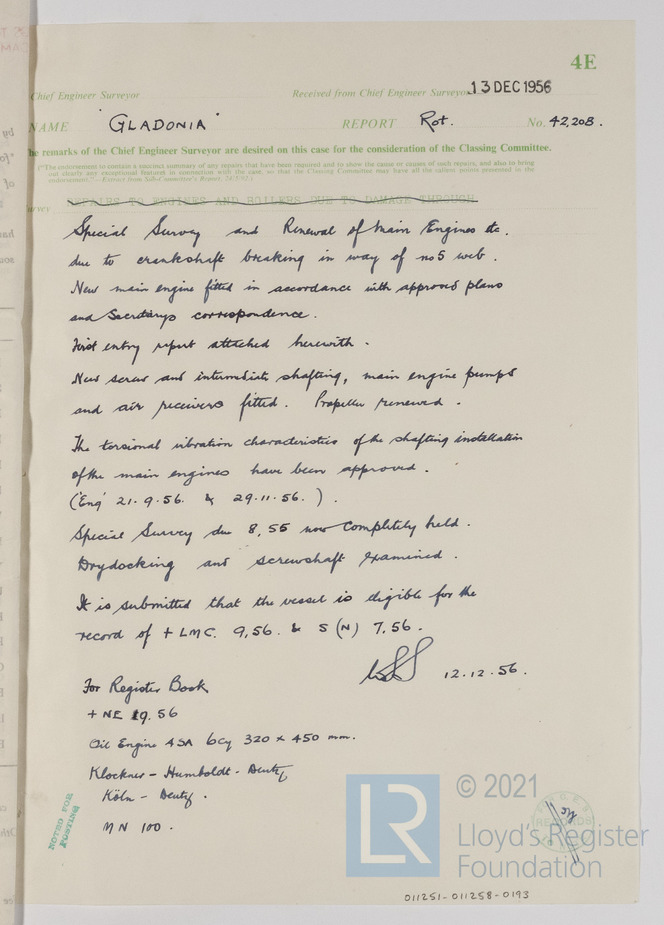 4E
Chief Engineer Surveyor
Received from Chief Engineer Surveyor 13 DEC 1956
NAME "GLADONIA" REPORT Rot. No. 42,208.
he remarks of the Chief Engineer Surveyor are desired on this case for the consideration of the Classing Committee.
("The endorsement to contain a succinct summary of any repairs that have been required and to show the cause or causes of such repairs, and also to bring
out clearly any exceptional features in connection with the case, so that the Classing Committee may have all the salient points presented in the
endorsement."—Extract from Sub-Committee's Report,
urvey REPAIRS TO ENGINES AND BOILERS DUE TO DAMAGE THROUGH
Special Survey and Renewal of Main Engines etc.
due to crankshaft breaking in way of no5 web.
New main engine fitted in accordance with approved plans
and Secretarys correspondence.
First entry report attached herewith.
New screw and intermediate shafting, main engine pumps
and air receivers fitted. Propeller renewed.
The torsional vibration characteristics of the shafting installation
of the main engines have been approved.
('Eng' 21.9.56. & 29.11.56.).
Special Survey due 8,55 now completely held.
Drydocking and screwshaft examined.
It is submitted that the vessel is eligible for the
record of + LMC. 9,56. & S (N) 7,56.
12.12.56.
For Register Book
+ NE 9.56
Oil Engine 4SA 6cy 320 x 450 mm.
Klockner - Humboldt - Deutz
Köln - Deutz.
M N 100.
NOTED FOR
POSTING
RECORDS
LR
© 2021
Lloyd's Register
Foundation
011251-011258-0193